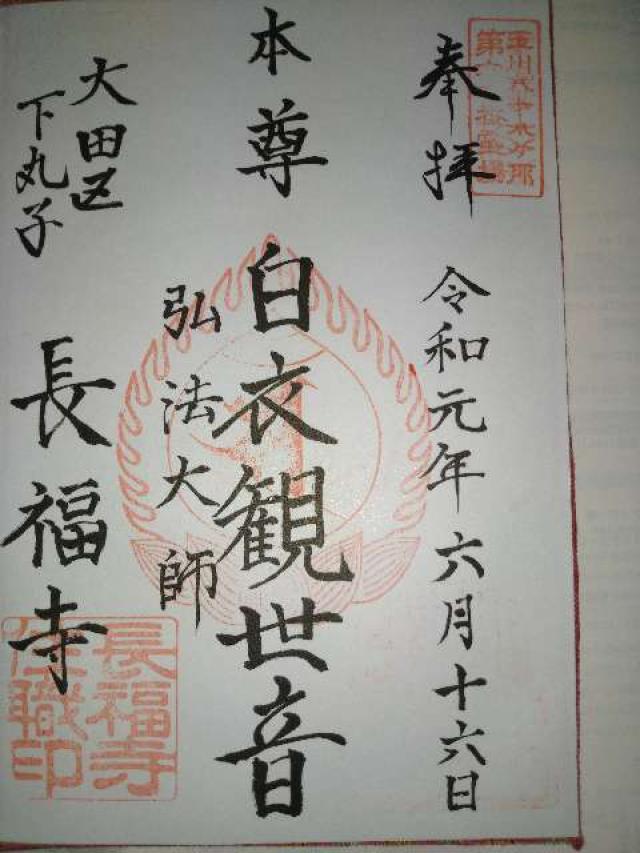 奉拝
令和元年六月十六日
本尊
白衣観世音
弘法大師
大田区
下丸子
長福寺
長福寺
住職印